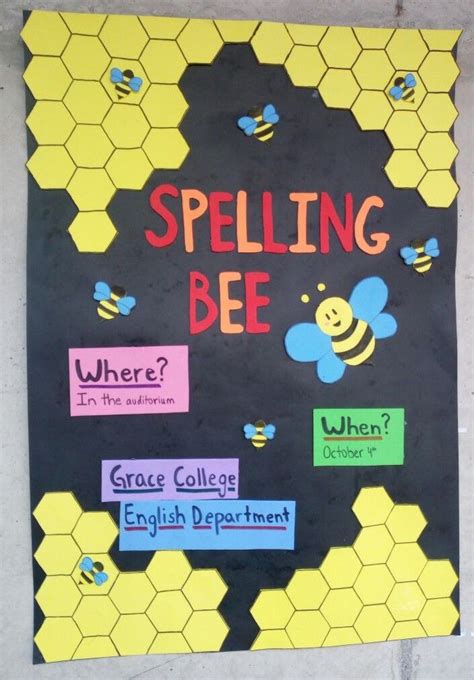 SPELLING
BEE
Where?
In the auditorium
When?
October 4th
Grace College
English Department